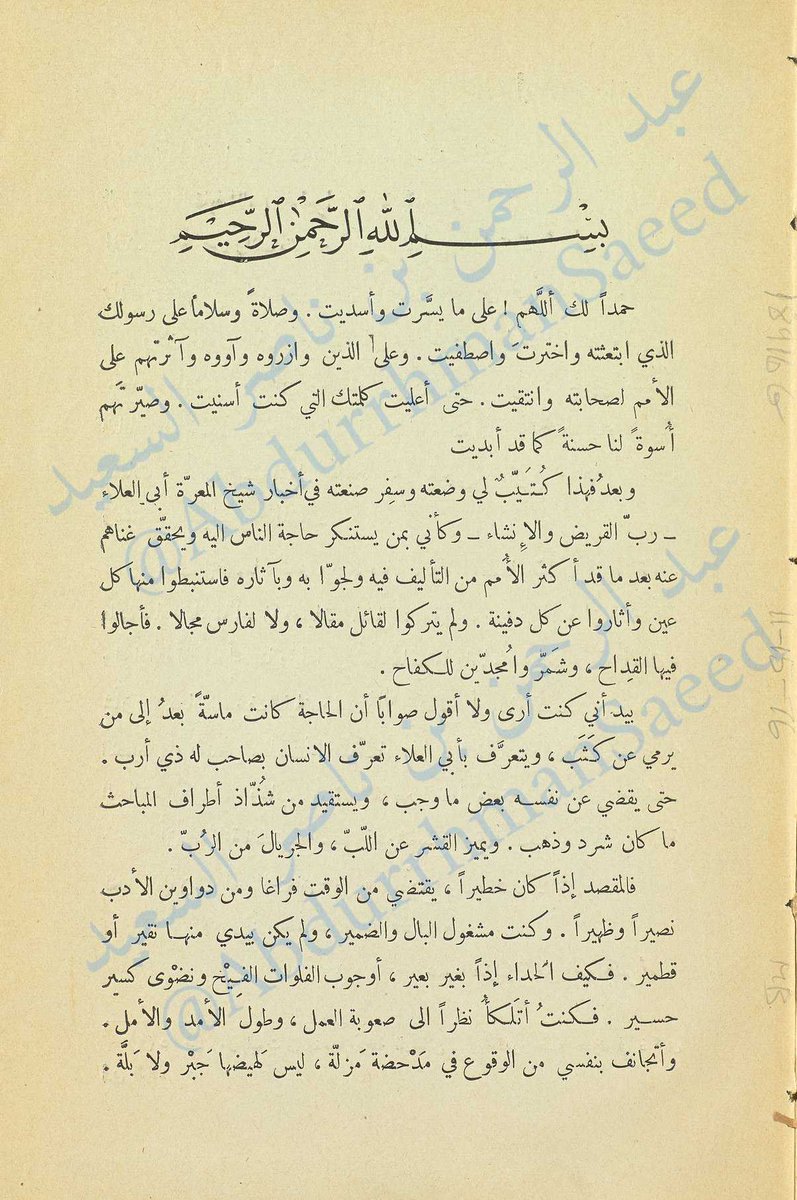 بسم الله الرحمن الرحيم
حمداً لك أللَّهم ! على ما يسَّرت وأسديت . وصلاةً وسلاماً على رسولك
الذي ابتعثته واخترتَ واصطفيت . وعلى الذين وازروه وآووه وآثرتهم على
الأمم لصحابته وانتقيت . حتى أعليت كلمتك التي كنت أسنيت . وصيّرتَهم
أُسوةً لنا حسنةً كما قد أبديت
وبعدُ فهذا كُتَيّبٌ لي وضعته وسفِر صنعته في أخبار شيخ المعرّة أبي العلاء
ـ ربّ القريض والإِنشاء ـ وكأني بمن يستنكر حاجة الناس اليه ويحقّق غناهم
عنه بعد ما قد أكثر الأُمم من التأليف فيه ولجوّا به وبآثاره فاستنبطوا منها كل
عين وأثاروا عن كل دفينة . ولم يتركوا لقائل مقالا ، ولا لفارس مجالا . فأجالوا
فيها القِداح ، وشمَرّ وامُجدّين للكفاح .
بيد أني كنت أرى ولا أقول صوابًا أن الحاجة كانت ماسّةً بعدُ إلى من
يرمي عن كَثَب ، ويتعرَّف بأبي العلاء تعرّف الانسان بصاحب له ذي أرب .
حتى يقضي عن نفسه بعض ما وجب ، ويستقيد من شُذّاذ أطراف المباحث
ما كان شرد وذهب . ويميز القشر عن اللّبّ ، والجريالَ من الرُبّ .
فالمقصد إذاً كان خطيراً ، يقتضي من الوقت فراغا ومن دواوين الأدب
نصيراً وظهيراً . وكنت مشغول البال والضمير ، ولم يكن بيدي منها نقير أو
قطمير . فكيف الحداء إذاً بغير بعير ، أوجوب الفلوات الفِيْح ونضْوى كسير
حسير . فكنتُ أتَلكأُ نظراً الى صعوبة العمل ، وطول الأمد والأمل .
وأتجانف بنفسي من الوقوع في مَدْحضة مَزلّة ، ليس لهيضها جَبْر ولا بَلَّة .
عبد الرحمن بن ناصر السعيد
@AbdurrhmanSaeed
عبد الرحمن بن ناصر السعيد
@AbdurrhmanSaeed